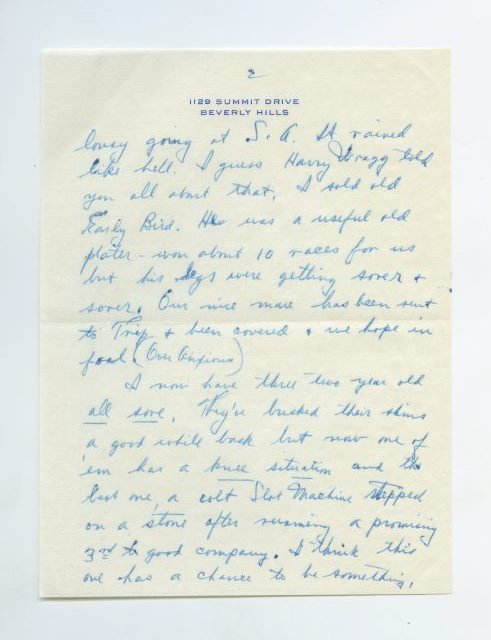 2
1129 SUMMIT DRIVE
BEVERLY HILLS
lousy going at S. A. It rained
like hell. I guess Harry Wragg told
you all about that. I sold old
Early Bird. He was a useful old
plater - won about 10 races for us
but his legs were getting sorer +
sorer. Our nice mare has been sent
to Trip + been covered + we hope in
foal (Over Anxious)
I now have three two year old
all sore. They've bucked their shins
a good while back but now one of
'em has a knee situation and the
best one, a colt Slot Machine stepped
on a stone after running a promising
3rd to good company. I think this
one has a chance to be something.